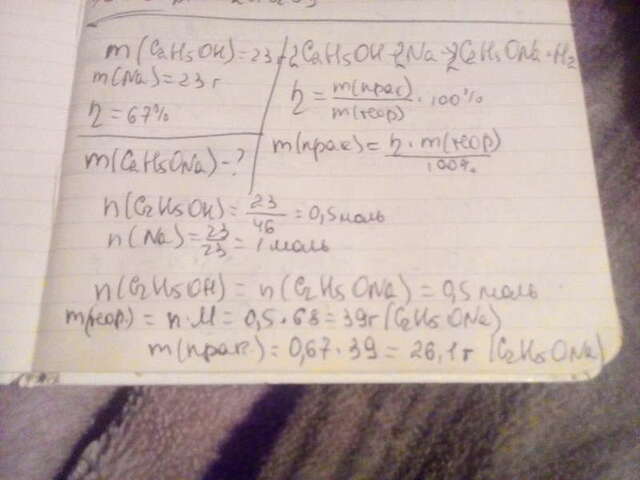 m(C2H5OH)=23г
m(Na)=23г
η=67%
m(C2H5ONa)-?
2C2H5OH+2Na→2C2H5ONa+H2
η = m(прак) / m(теор) · 100%
m(прак) = η · m(теор) / 100%
n(C2H5OH) = 23/46 = 0,5 моль
n(Na) = 23/23 = 1 моль
n(C2H5OH) = n(C2H5ONa) = 0,5 моль
m(теор.) = n·M = 0,5·68 = 39г (C2H5ONa)
m(прак.) = 0,67·39 = 26,1г (C2H5ONa)